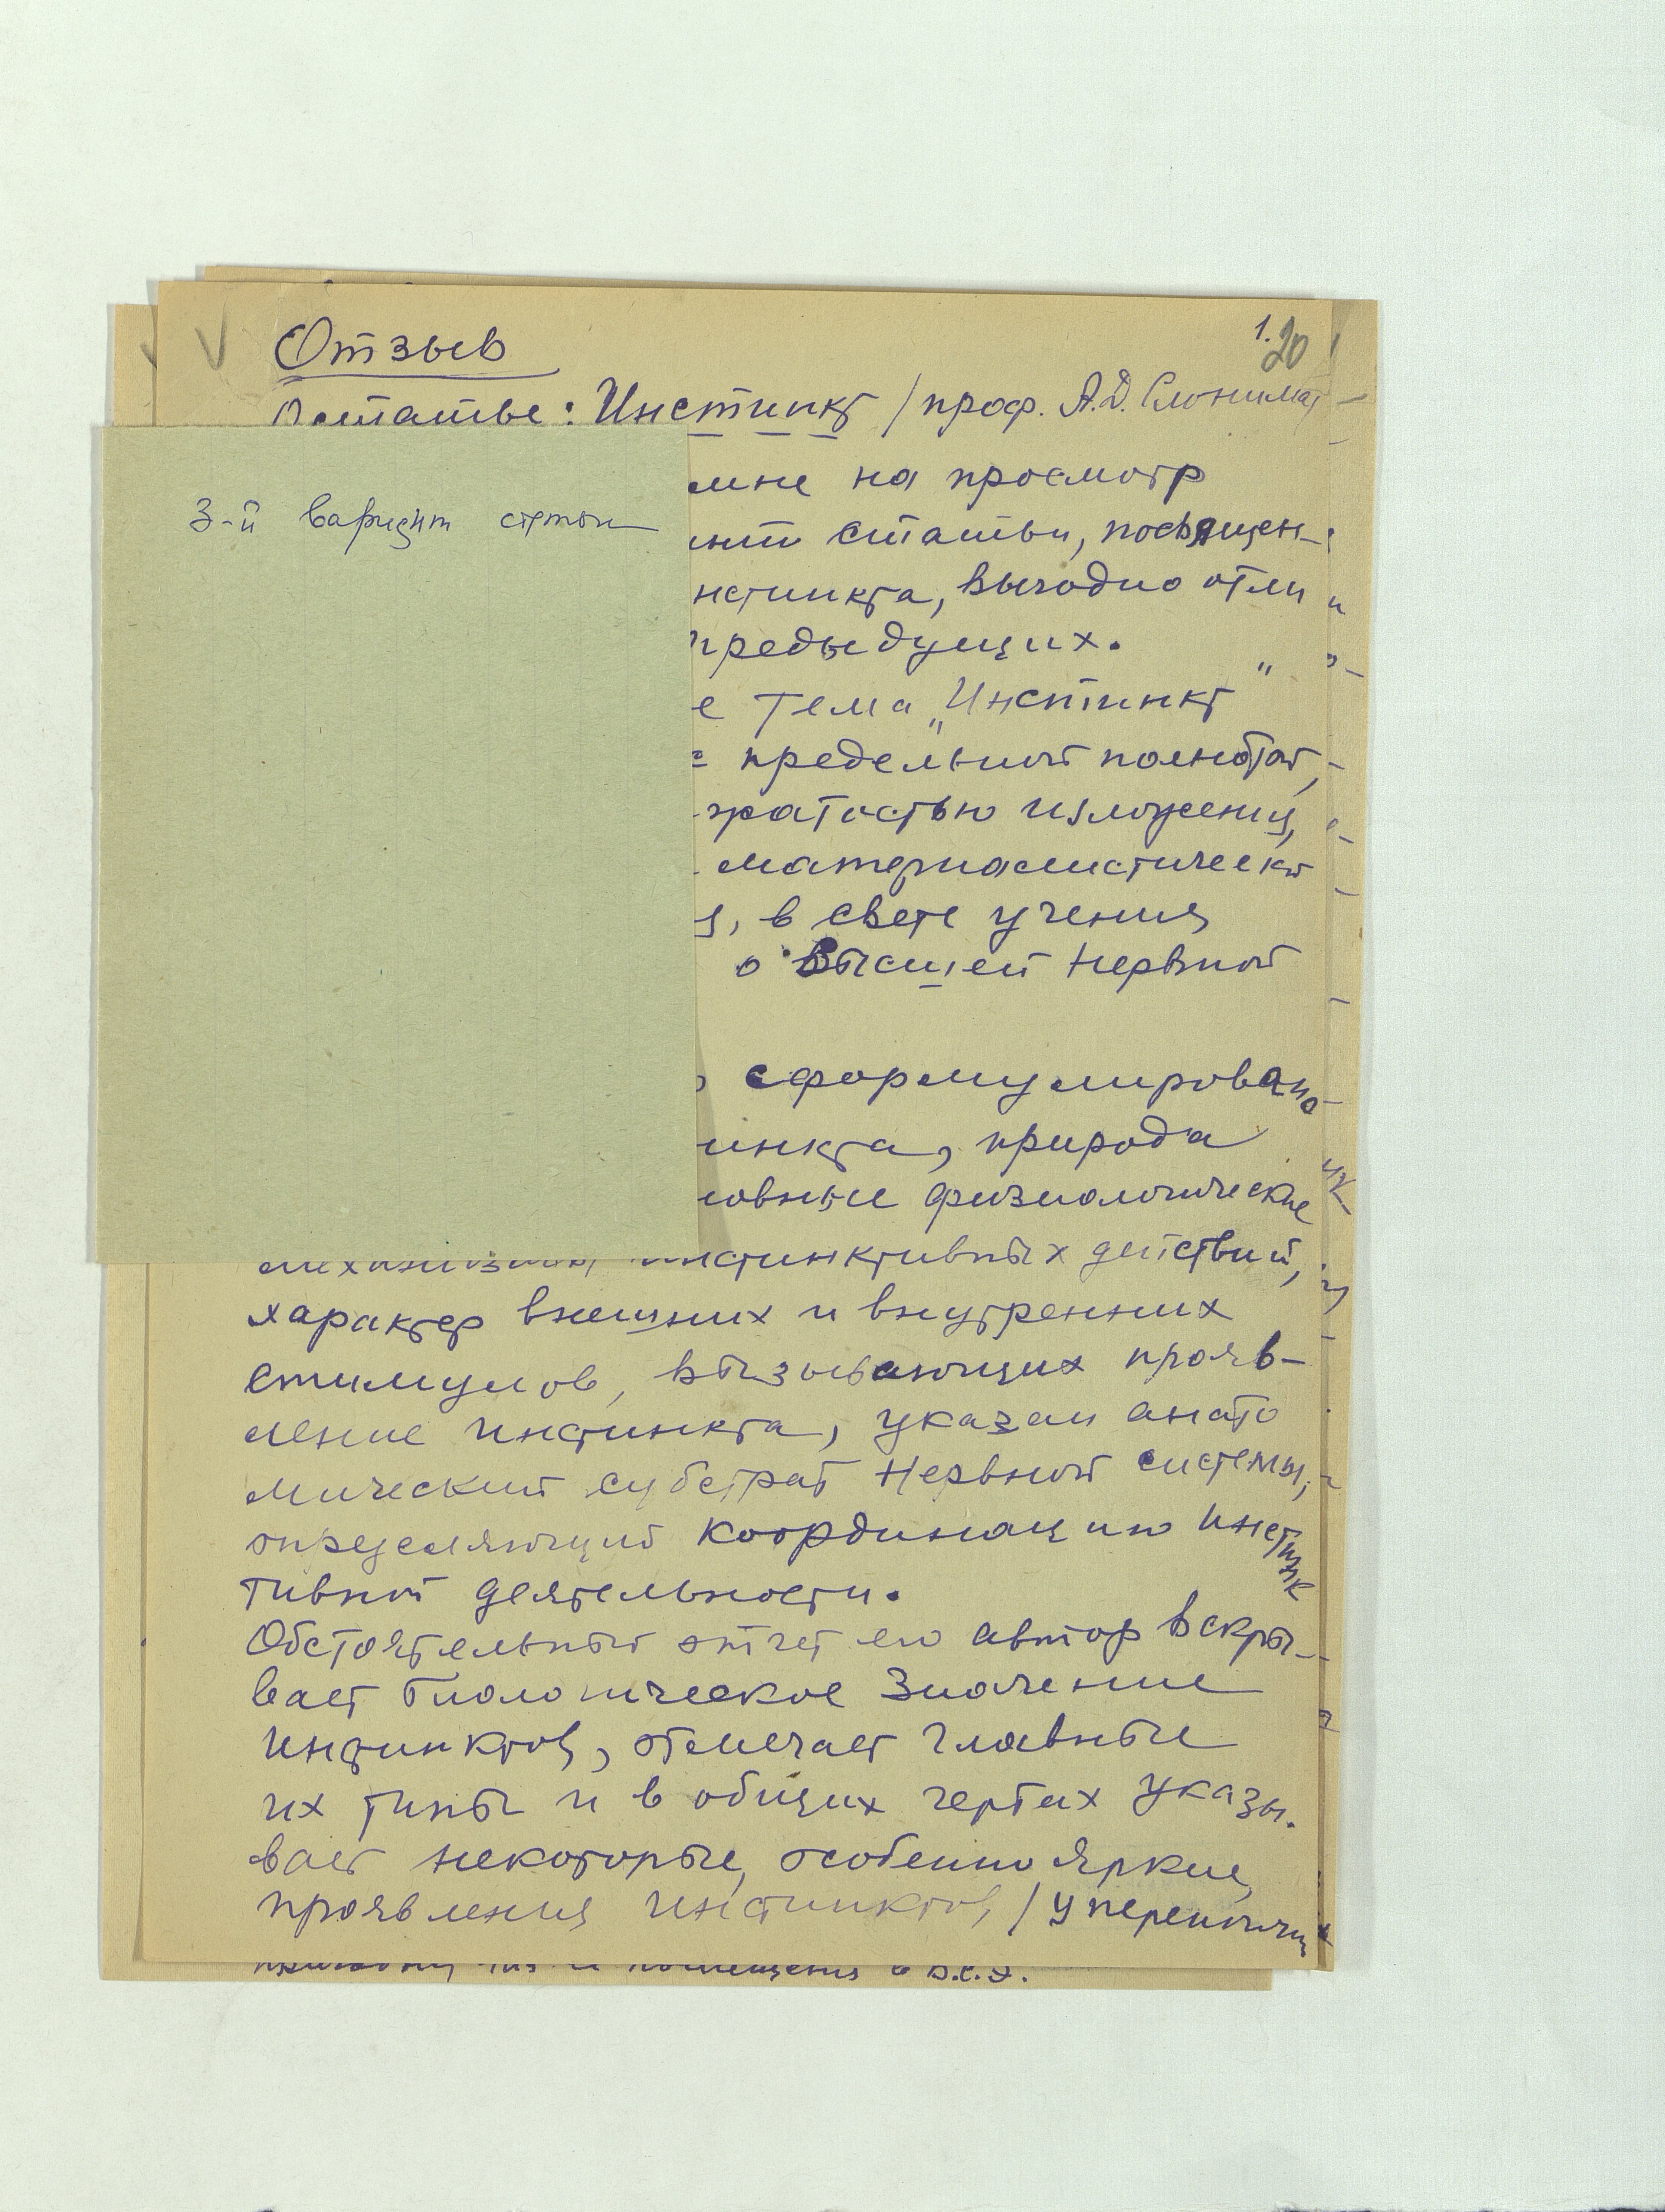 1.
20
Отзыв
о статье: Инстинкт / проф. А.Д. Слонима/
3-й вариант статьи
мне на просмотр
статьи, посвящен-
нстинкта, выгодно отли
предыдущих.
е тема „Инстинкт"
предельной полнотой,
жатостью изложения,
материалистическ
я, в свете учения
о высшей нервной
сформулировано
инкта, природа
новные физиологические
механизмы инстинктивных действий,
характер внешних и внутренних
стимулов, вызывающих прояв-
ление инстинкта, указан анато
мический субстрат нервной системы,
определяющий координацию инстинк
тивной деятельности.
Обстоятельный отчет его автор вскры-
вает биологическое значение
инстинктов, отмечает главные
их типы и в общих чертах указы-
вает некоторые, особенно яркие,
проявления инстинктов, / у перепончат
помещения в Б.С.Э.